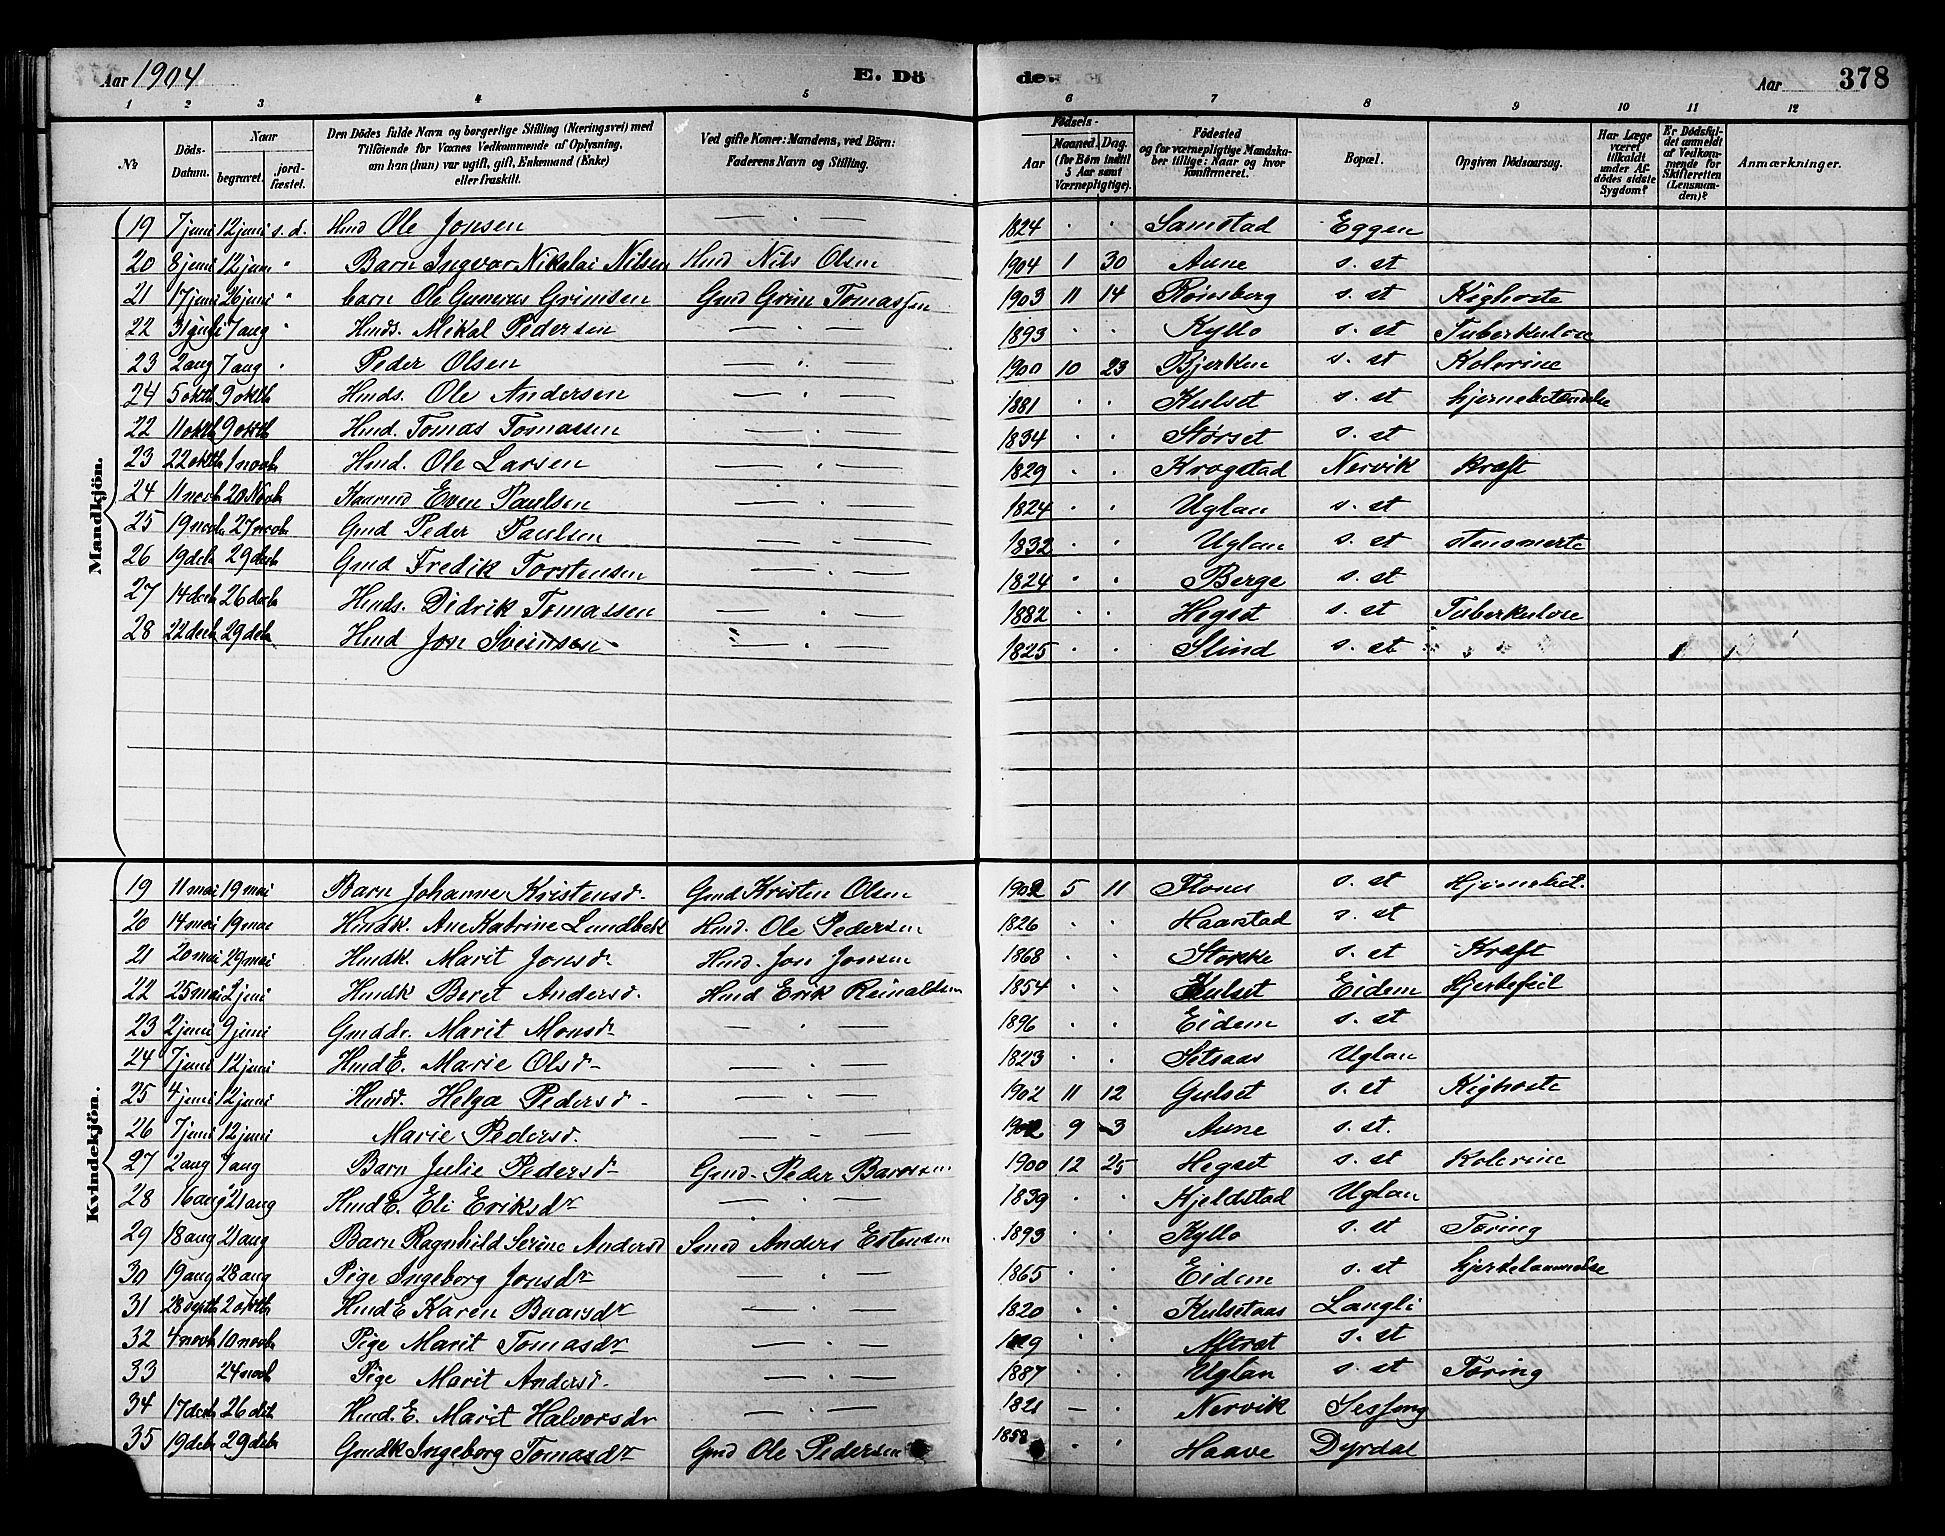 Aar 1904 E. Dö de. Aar 378
1 2 3 4 5 6 7 8 9 10 11 12
№ Döds-Datum. Naar begravet. jordfæstet. Den Dödes fulde Navn og borgerlige Stilling (Næringsvei) med Tilföiende for Voxnes Vedkommende af Oplysning, om han (hun) var ugift, gift, Enkemand (Enke) eller fraskilt. Ved gifte Koner: Mandens, ved Börn: Faderens Navn og Stilling. Födsels- Aar Maaned. Dag. (for Börn indtil 5 Aar samt Værnepligtige). Födested og for værnepligtige Mandskaber tillige: Naar og hvor konfirmeret. Bopæl. Opgiven Dödsaarsag. Har Læge været tilkaldt under Afdödes sidste Sygdom? Er Dödsfaldet anmeldt af Vedkommende for Skifteretten (Lensmanden)? Anmærkninger.
Mandkjön.
19 7 juni 12 juni s. d. Hmd Ole Jonsen — . — 1824 . . Samstad Eggen
20 8 juni 12 juni " Barn Ingvar Nikolai Nilsen Hmd Nils Olsen 1904 1 30 Aune s. st
21 17 juni 26 juni " barn Ole Gunerus Grimsen Gmd Grim Tomassen 1903 11 14 Rönsberg s. st Kighoste
22 31 juli 7 aug " Hmds. Mikal Pedersen — . — 1893 . . Kyllo s. st Tuberkulose
23 2 aug 7 aug " Peder Olsen — . — 1900 10 23 Bjerken s. st Kolerine
24 5 oktb 9 oktb Hmds. Ole Andersen — . — 1881 . . Kulset s. st hjernebetændelse
22 11 oktb 9 oktb Hmd. Tomas Tomassen — . — 1834 . . Størset s. st
23 22 oktb 1 novb Hmd. Ole Larsen — . — 1829 . . Krogstad Nervik kræft
24 11 novb 20 Novb Kaarmd Even Paulsen — . — 1824 . . Uglan s. st
25 19 novb 27 novb Gmd Peder Paulsen — . — 1832 . . Uglan s. st stensmerte
26 19 deb 29 decb Gmd Fredik Torstensen — . — 1824 . . Berge s. st
27 14 decb 26 decb Hmds. Didrik Tomassen — . — 1882 . . Hegset s. st Tuberkulose
28 22 decb 29 deb Hmd Jon Sveinsen — . — 1825 . . Slind s. st
Kvindekjön.
19 11 mai 19 mai Barn Johanne Kristensd. Gmd Kristen Olsen 1902 5 11 Flones s. st Hjernebet.
20 14 mai 19 mai Hmdk. Ane Katrine Lundbek Hmd. Ole Pedersen 1826 . . Haarstad s. st
21 20 mai 29 mai Hmdk. Marit Jonsd. Hmd. Jon Jonsen 1868 . . Stokke s. st Kræft
22 25 mai 2 juni Hmdk Beret Andersd. Hmd Erik Reinaldsen 1854 . . Kulset Eidem Hjertefeil
23 2 juni 9 juni Gmddr. Marit Monsdr — . — 1896 . . Eidem s. st
24 7 juni 12 juni Hmd E. Marie Olsdr — . — 1823 . . Setsaas Uglan
25 4 juni 12 juni Hmdd. Helga Pedersd — . — 1902 11 12 Gulset s. st Kighoste
26 7 juni 12 juni Marie Pedersd. — . — 1902 9 3 Aune s. st.
27 2 aug 7 aug Barn Julie Pedersdr Gmd. Peder Baarsen 1900 12 25 Hegset s. st Kolerine
28 16 aug 21 aug Hmd E. Eli Eriksdr — . — 1839 . . Kjeldstad Uglan
29 18 aug 21 aug Barn Ragnhild Serine Andersd Smd Anders Estensen 1893 . . Kyllo s. st Tæring
30 19 aug 28 aug Pige Ingeborg Jonsdr — . — 1865 . . Eidem s. st hjertelammelse
31 28 septb 2 oktb Hmd E Karen Baarsdr — . — 1820 . . Kulsetaas Langli
32 4 novb 10 novb Pige Marit Tomasdr — . — . . s. st
33 24 novb Pige Marit Andersd. — . — 1887 . . Uglan s. st Tæring
34 17 decb 26 deb Hmd. E. Marit Halvorsdr — . — 1821 — . Nervik Sesseng
35 19 deb 29 deb Gmdk Ingeborg Tomasdr Gmd Ole Pedersen 1858 . . Haave Dyrdal